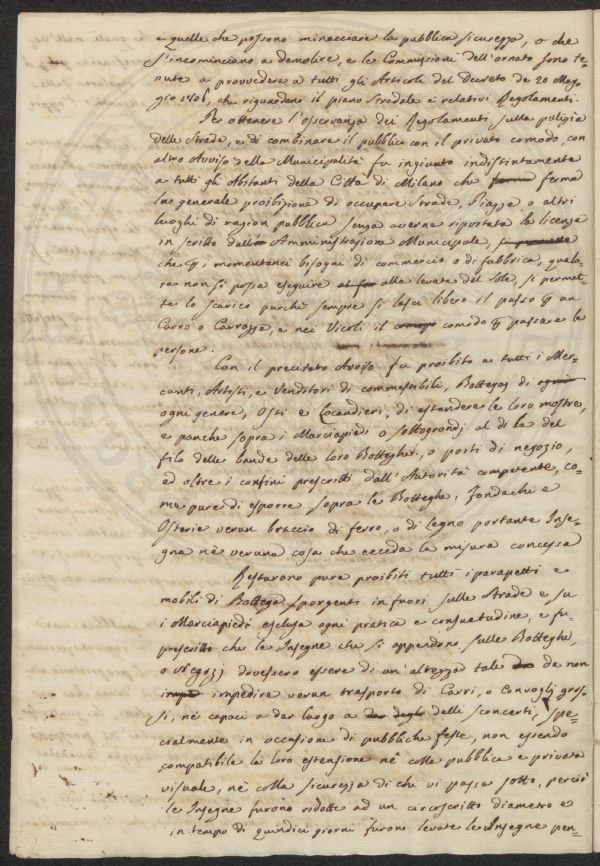 e quelle che possono minacciare la pubblica sicurezza, o che
s'incominciano a demolire, e le Commissioni dell'ornato sono te-
nute a provvedere a tutti gli Articoli del Decreto de 20 Mag-
gio che riguardano il piano Stradale e relativi Regolamenti.
Per ottenere l'osservanza dei Regolamenti sulla pulizia
delle Strade, e di combinare il pubblico con il privato comodo, con
altro Avviso della Municipalità fu ingiunto indistintamente
a tutti gli Abitanti della Città di Milano che ferma
la generale proibizione di occupare Strade, Piazze o altri
luoghi di ragion pubblica senza averne riportata la licenza
in scritto dall'Amministrazione Municipale,
che p i momentanei bisogni di commercio o di fabbrica, qualo-
ra non si possa eseguire alla levata del Sole, si permet-
te lo scarico purche sempre si lasci libero il passo p un
Carro o Carrozza, e nei Vicoli il comodo p passare le
persone.
Con il precitato Avviso fu proibito a tutti i Mer-
canti, Artisti, e Venditori di commestibili, Bottegaj di
ogni genere, Osti e Locandieri, di estendere le loro mostre,
e panche sopra i Marciapiedi o sottogrondj al di la del
filo delle bande delle loro Botteghe, o posti di negozio,
ed oltre i confini prescritti dall'Autorità competente, co-
me pure di esporre sopra le Botteghe, Fondachi e
Osterie verun braccio di ferro, o di legno portante Inse-
gna nè veruna cosa che ecceda la misura concessa
Restarono pure proibiti tutti i parapetti e
mobili di Bottega sporgenti in fuori sulle Strade e su
i Marciapiedi esclusa ogni pratica e consuetudine, e fu
prescritto che le Insegne che si appendono sulle Botteghe,
o Negozj dovessero essere di un'altezza tale da non
impedire verun trasporto di Carri, o Convoglj gros-
si, nè capaci a dar luogo a delli sconcerti, spe-
cialmente in occasione di pubbliche feste, non essendo
compatibile la loro estensione nè colla pubblica e privata
visuale, nè colla sicurezza di chi vi passa sotto, perciò
le Insegne furono ridotte ad un circoscritto diametro e
in tempo di quindici giorni furono levate le Insegne pen-